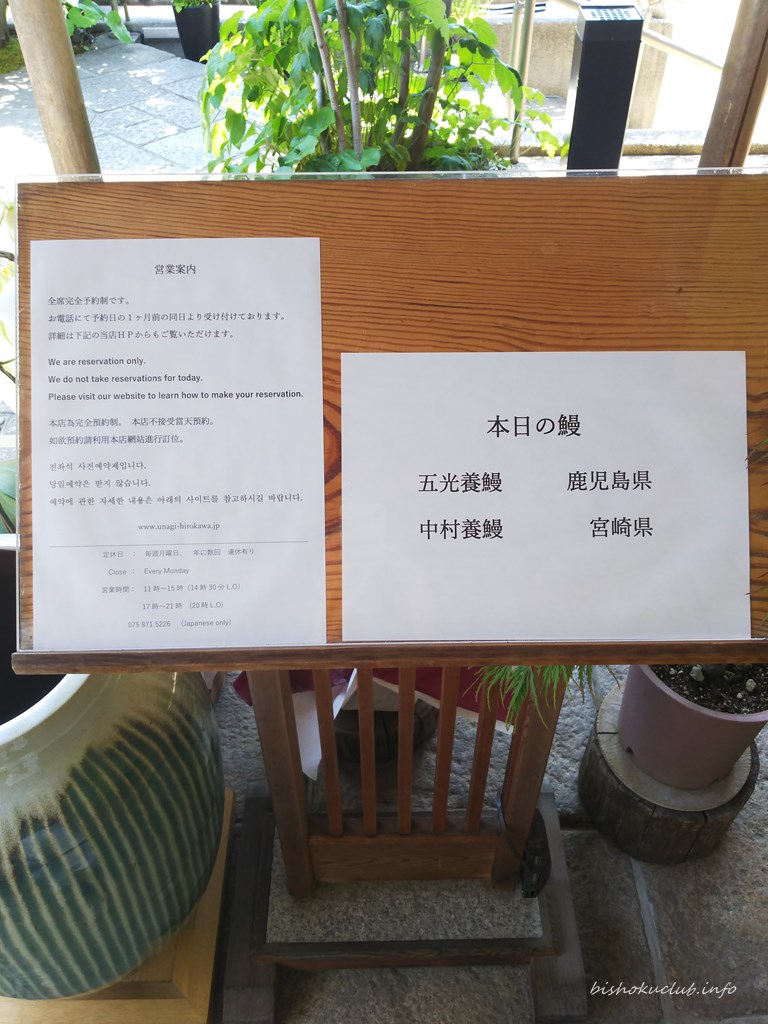 営業案内
全席完全予約制です。
お電話にて予約日の１ヶ月前の同日より受け付けております。
詳細は下記の当店ＨＰからもご覧いただけます。
We are reservation only.
We do not take reservations for today.
Please visit our website to learn how to make your reservation.
本店為完全預約制。 本店不接受當天預約。
如欲預約請利用本店網站進行訂位。
전좌석 사전예약제입니다.
당일예약은 받지 않습니다.
예약에 관한 자세한 내용은 아래의 사이트를 참고하시길 바랍니다.
www.unagi-hirokawa.jp
定休日 ： 毎週月曜日、 年に数回 連休有り
Close ： Every Monday
営業時間： 11時～15時（14時30分L.O）
17時～21時 （20時L.O）
075 871 5226 （Japanese only）
本日の鰻
五光養鰻 鹿児島県
中村養鰻 宮崎県
bishokuclub.info